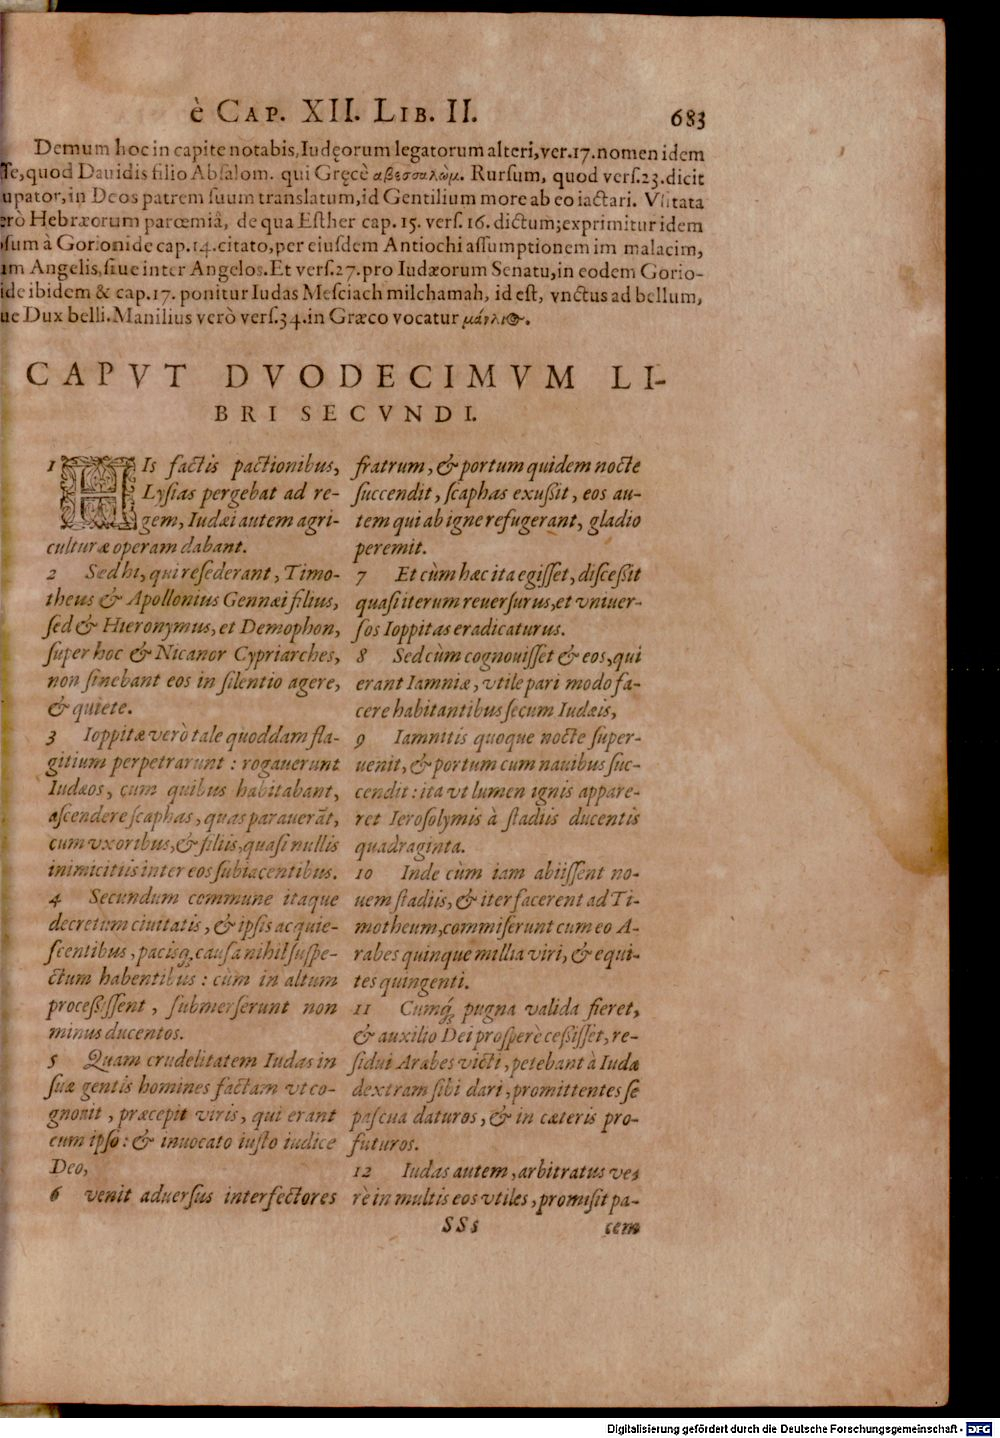 è CAP. XII. LIB. II. 683
Demum hoc in capite notabis, Iudęorum legatorum alteri, ver. 17. nomen idem
sse, quod Dauidis filio Absalom. qui Gręcè αβεσσαλώμ. Rursum, quod vers. 23. dicit
upator, in Deos patrem suum translatum, id Gentilium more ab eo iactari. Vsitata
erò Hebræorum parœmiâ, de qua Esther cap. 15. vers. 16. dictum; exprimitur idem
sum à Gorionide cap. 14. citato, per eiusdem Antiochi assumptionem im malacim,
um Angelis, siue inter Angelos. Et vers. 27. pro Iudæorum Senatu, in eodem Gorio-
ide ibidem & cap. 17. ponitur Iudas Mesciach milchamah, id est, vnctus ad bellum,
ue Dux belli. Manilius verò vers. 34. in Græco vocatur μάνλιος.
CAPVT DVODECIMVM LI-
BRI SECVNDI.
1 HIs factis pactionibus,
Lysias pergebat ad re-
gem, Iudæi autem agri-
culturæ operam dabant.
2 Sed hi, qui resederant, Timo-
theus & Apollonius Gennæi filius,
sed & Hieronymus, et Demophon,
super hoc & Nicanor Cypriarches,
non sinebant eos in silentio agere,
& quiete.
3 Ioppitæ verò tale quoddam fla-
gitium perpetrarunt: rogauerunt
Iudæos, cum quibus habitabant,
ascendere scaphas, quas parauerāt,
cum vxoribus, & filiis, quasi nullis
inimicitiis inter eos subiacentibus.
4 Secundum commune itaque
decretum ciuitatis, & ipsis acquie-
scentibus, pacisq́; causa nihil suspe-
ctum habentibus: cùm in altum
processissent, submerserunt non
minus ducentos.
5 Quam crudelitatem Iudas in
suæ gentis homines factam vt co-
gnouit, præcepit viris, qui erant
cum ipso: & inuocato iusto iudice
Deo,
6 venit aduersus interfectores
fratrum, & portum quidem nocte
succendit, scaphas exussit, eos au-
tem qui ab igne refugerant, gladio
peremit.
7 Et cùm hæc ita egisset, discessit
quasi iterum reuersurus, et vniuer-
sos Ioppitas eradicaturus.
8 Sed cùm cognouisset & eos, qui
erant Iamniæ, vtile pari modo fa-
cere habitantibus secum Iudæis,
9 Iamnitis quoque nocte super-
uenit, & portum cum nauibus suc-
cendit: ita vt lumen ignis appare-
ret Ierosolymis à stadiis ducentis
quadraginta.
10 Inde cùm iam abiissent no-
uem stadiis, & iter facerent ad Ti-
motheum, commiserunt cum eo A-
rabes quinque millia viri, & equi-
tes quingenti.
11 Cumq́; pugna valida fieret,
& auxilio Dei prosperè cessisset, re-
sidui Arabes victi, petebant à Iuda
dextram sibi dari, promittentes se
pascua daturos, & in cæteris pro-
futuros.
12 Iudas autem, arbitratus ve-
rè in multis eos vtiles, promisit pa-
SSs cem
Digitalisierung gefördert durch die Deutsche Forschungsgemeinschaft - DFG